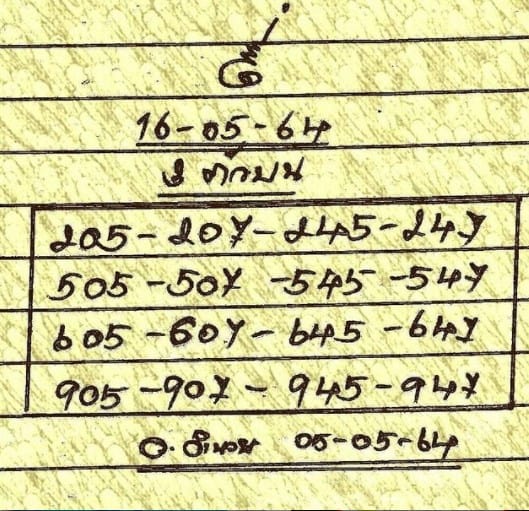 16-05-64
3 ตัวบน
205-207-245-247
505-507-545-547
605-607-645-647
905-907-945-947
05-05-64